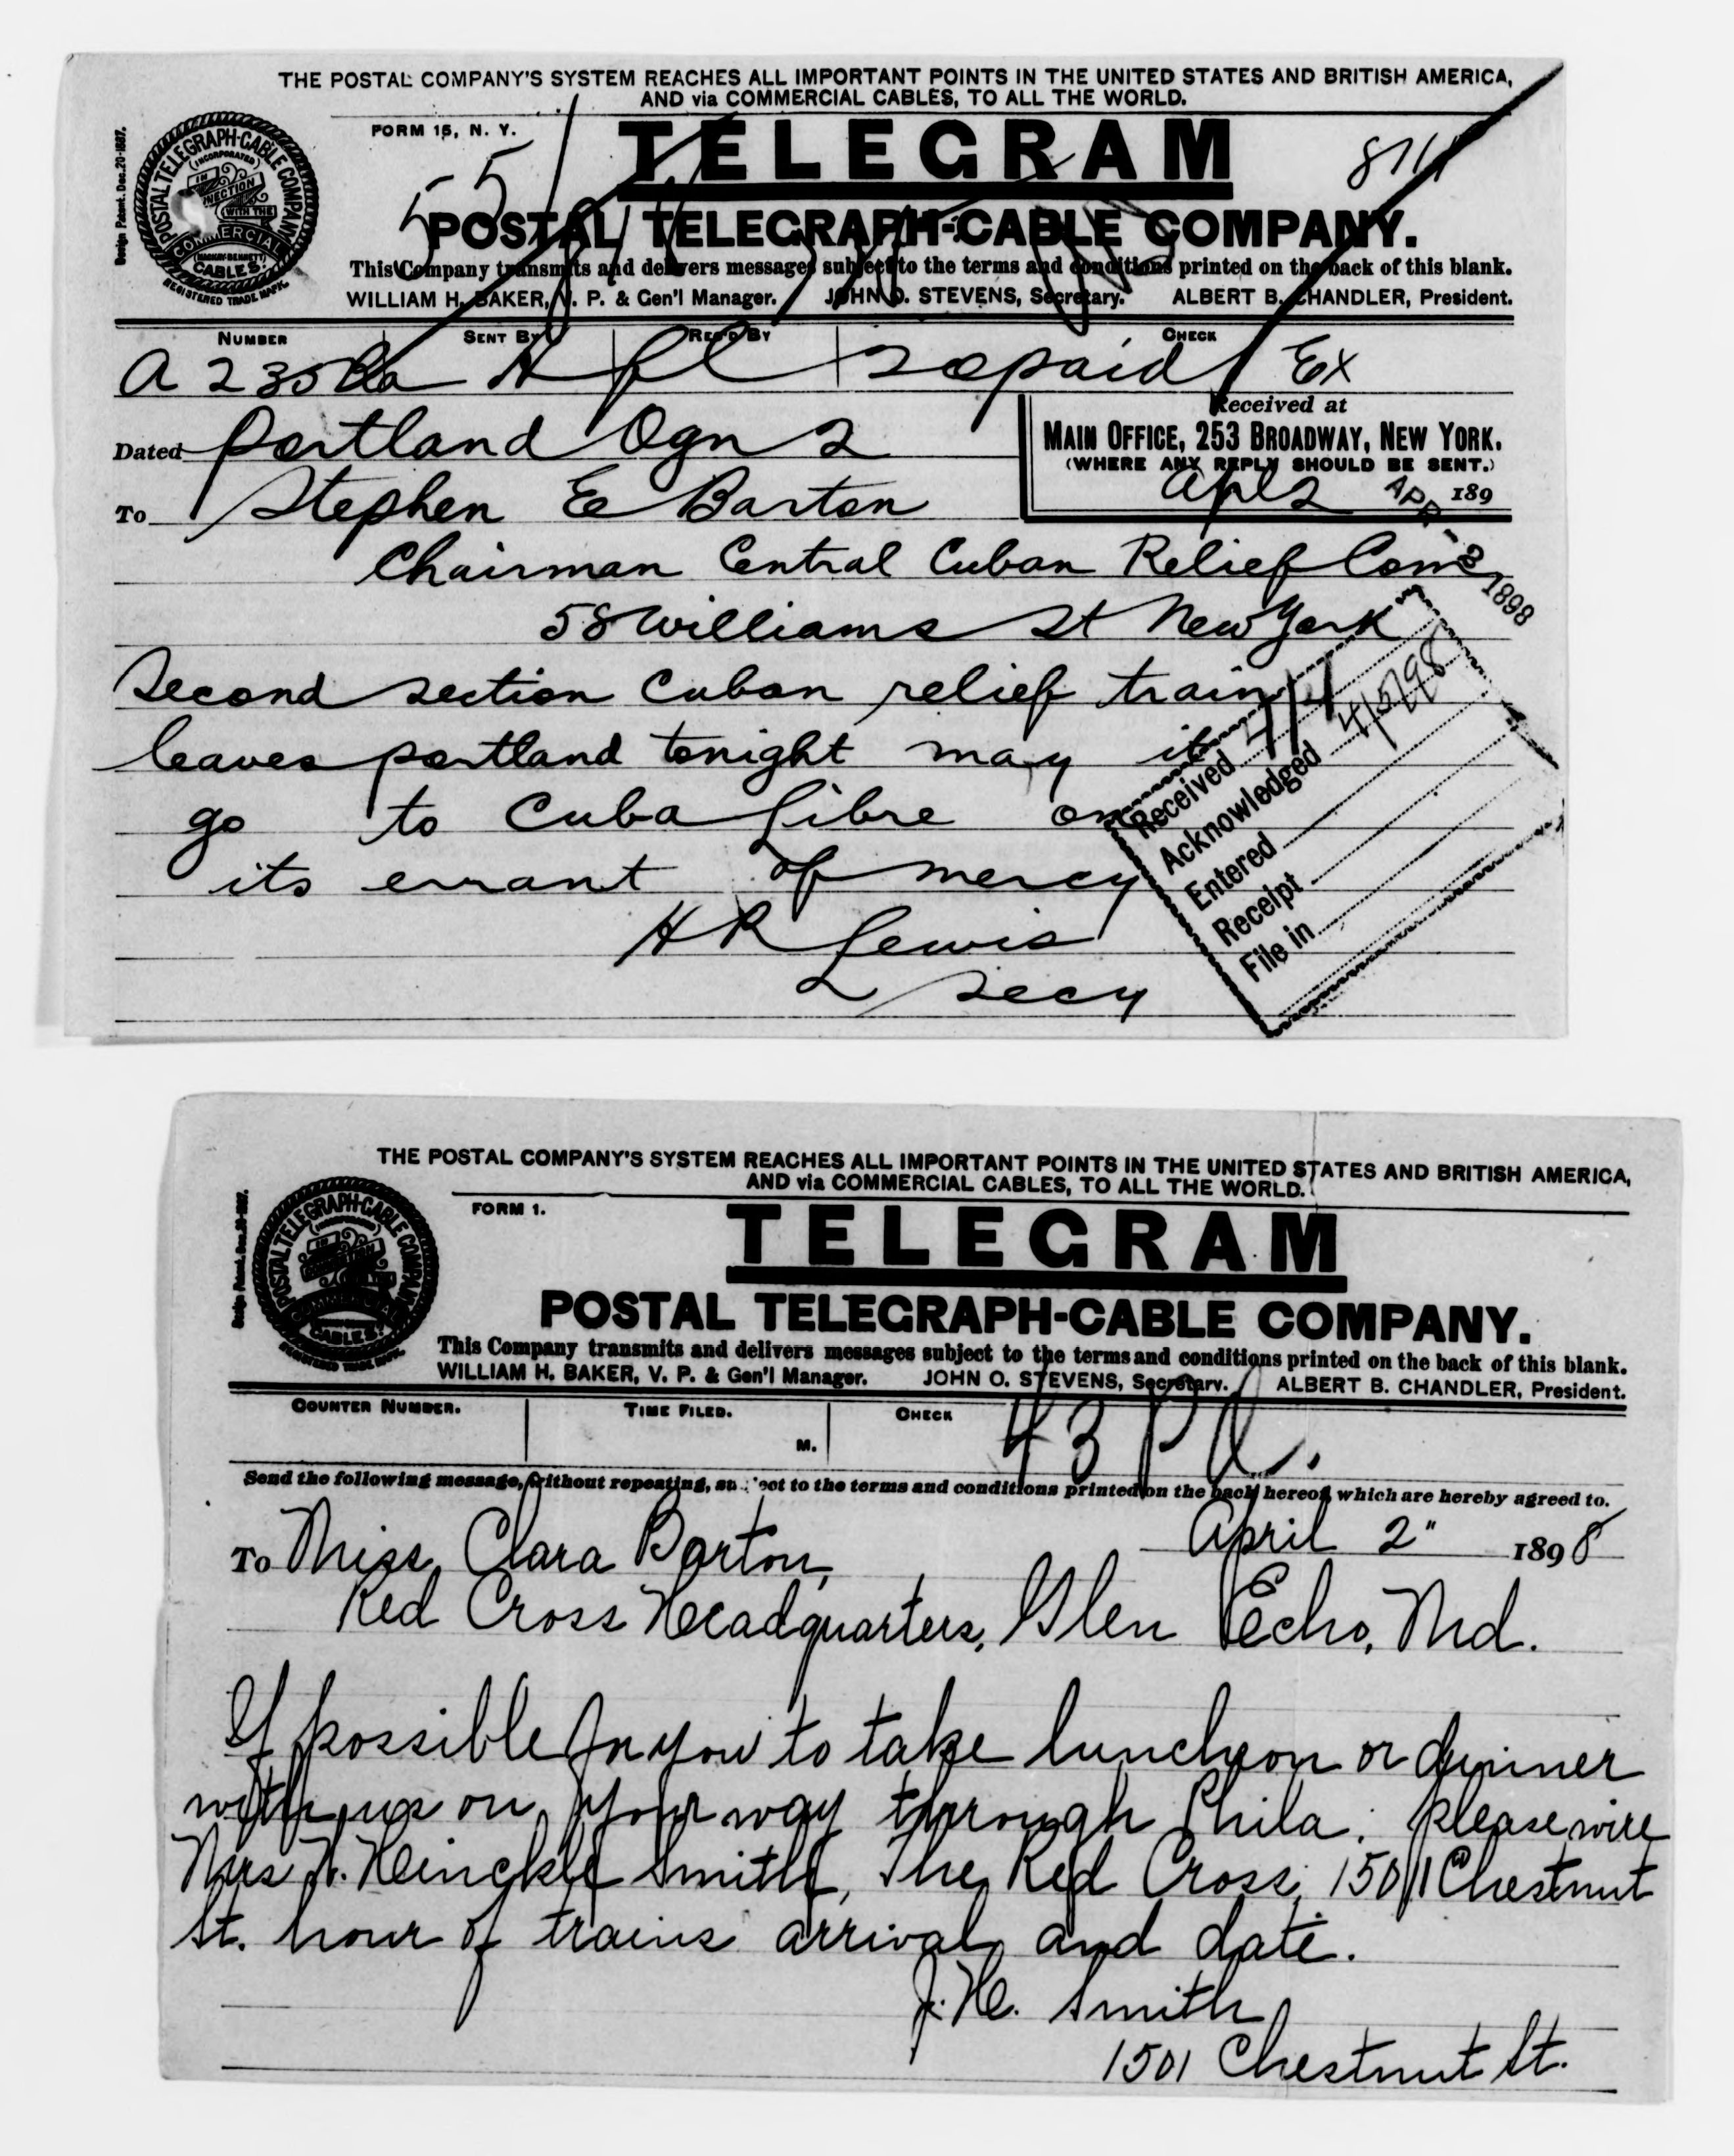 THE POSTAL COMPANY'S SYSTEM REACHES ALL IMPORTANT POINTS IN THE UNITED STATES AND BRITISH AMERICA,
AND via COMMERCIAL CABLES, TO ALL THE WORLD.
Design Patent. Dec. 20-1887.
POSTAL TELEGRAPH-CABLE COMPANY
(INCORPORATED)
IN
WITH THE
COMMERCIAL
(MACKAY-BENNETT)
CABLES.
REGISTERED TRADE MARK.
FORM 15, N. Y.
TELEGRAM
55
POSTAL TELEGRAPH-CABLE COMPANY.
This Company transmits and delivers messages subject to the terms and conditions printed on the back of this blank.
WILLIAM H. BAKER, V. P. & Gen'l Manager. JOHN O. STEVENS, Secretary. ALBERT B. CHANDLER, President.
NUMBER SENT BY REC'D BY CHECK
A 235 paid Ex
Received at
Dated Portland Ogn 2
MAIN OFFICE, 253 BROADWAY, NEW YORK.
(WHERE ANY REPLY SHOULD BE SENT.)
Apl 2 189
APR -3 1898
To Stephen E Barton
Chairman Central Cuban Relief Com
58 Williams St New York
Second section Cuban relief train
leaves portland tonight may it
go to Cuba Libre on
its errant of mercy
H R Lewis
Secy
Received 4/4
Acknowledged 4/5/98
Entered
Receipt
File in
THE POSTAL COMPANY'S SYSTEM REACHES ALL IMPORTANT POINTS IN THE UNITED STATES AND BRITISH AMERICA,
AND via COMMERCIAL CABLES, TO ALL THE WORLD.
Design Patent. Dec. 20-1887.
POSTAL TELEGRAPH-CABLE COMPANY
IN
COMMERCIAL
CABLES.
REGISTERED TRADE MARK.
FORM 1.
TELEGRAM
POSTAL TELEGRAPH-CABLE COMPANY.
This Company transmits and delivers messages subject to the terms and conditions printed on the back of this blank.
WILLIAM H. BAKER, V. P. & Gen'l Manager. JOHN O. STEVENS, Secretary. ALBERT B. CHANDLER, President.
COUNTER NUMBER. TIME FILED. CHECK
M. 43
Send the following message, without repeating, subject to the terms and conditions printed on the back hereof, which are hereby agreed to.
April 2" 1898
To Miss Clara Barton,
Red Cross Headquarters, Glen Echo, Md.
If possible for you to take luncheon or dinner
with us on your way through Phila. please wire
Mrs J. Heinckle Smith, The Red Cross, 1501 Chestnut
St. hour of trains arrival and date.
J. H. Smith
1501 Chestnut St.